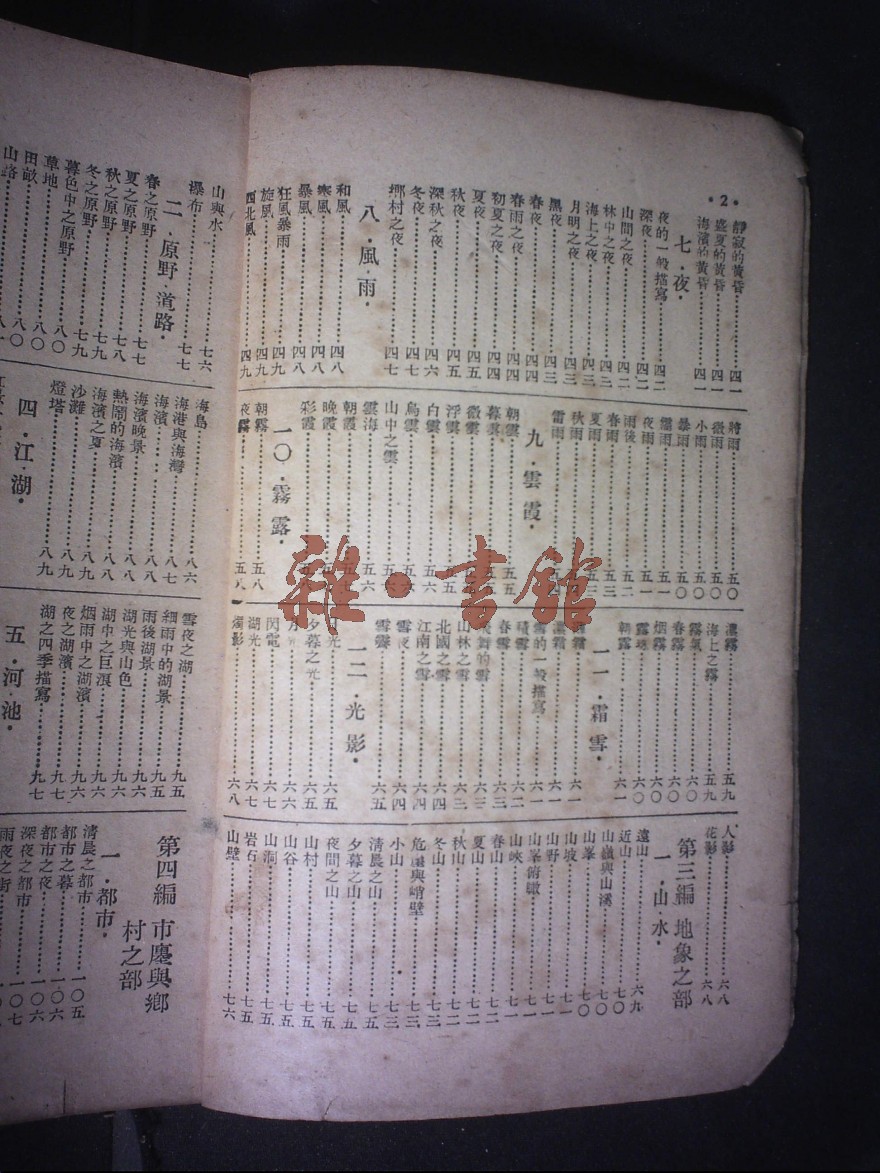 ·2·
靜寂的黃昏……四一
盛夏的黃昏……四一
海濱的黃昏……四一
七·夜·
夜的一般描寫……四二
深夜……四二
山間之夜……四二
林中之夜……四三
海上之夜……四三
月明之夜……四三
黑夜……四三
春夜……四四
春雨之夜……四四
初夏之夜……四四
夏夜……四五
秋夜……四五
深秋之夜……四六
冬夜……四七
鄉村之夜……四七
八·風·雨·
和風……四八
寒風……四八
暴風……四八
狂風暴雨……四九
旋風……四九
西北風……四九
將雨……五〇
微雨……五〇
小雨……五〇
暴雨……五〇
驟雨……五一
夜雨……五一
雨後……五二
春雨……五三
夏雨……五三
秋雨
雷雨
九·雲·霞·
朝雲……五五
暮雲……五五
微雲
浮雲
白雲……五六
烏雲
山中之雲
雲海……五六
朝霞
晚霞
彩霞
一〇·霧·露·
朝霧……五八
夜霧……五八
濃霧……五九
海上之霧……五九
霧氣……六〇
春霧……六〇
烟霧……六〇
露珠……六〇
朝露……六一
一一·霜·雪·
濃霜……六一
雪的一般描寫……六一
積雪……六二
春雪……六三
飛舞的雪……六三
山林之雪……六三
北國之雪……六四
江南之雪……六四
雪夜……六四
雪霽……六五
一二·光·影·
夕暮之光……六五
月光……六六
閃電……六七
湖光……六七
燭影……六八
人影……六八
花影……六八
第三編 地象之部
一·山·水·
遠山……六九
近山……七〇
山嶺與山溪……七〇
山峯……七〇
山坡……七一
山野……七一
山峯俯瞰……七一
山峽……七一
春山……七二
夏山……七二
秋山……七二
冬山……七三
危巖與峭壁……七三
小山……七三
清晨之山……七五
夕暮之山……七五
夜間之山……七五
山村……七五
山谷……七五
山洞……七五
岩石……七五
山壁……七六
山與水……七六
瀑布……七七
二·原野·道路·
春之原野……七七
夏之原野……七八
秋之原野……七九
冬之原野……七九
暮色中之原野……八〇
草地……八〇
田畝……八〇
山路……八一
海島……八六
海港與海灣……八七
海濱……八八
海濱晚景……八八
熱鬧的海濱……八八
海濱之夏……八九
沙灘……八九
燈塔……八九
四·江·湖·
雪夜之湖……九五
細雨中的湖景……九五
雨後湖景……九六
湖光與山色……九六
湖中之巨浪……九六
烟雨中之湖濱……九六
夜之湖濱……九七
湖之四季描寫……九七
五·河·池·
第四編 市廛與鄉村之部
一·都市·
清晨之都市……一〇五
都市之暮……一〇六
都市之夜……一〇六
深夜之都市……一〇七
雨夜之街
雜·書館